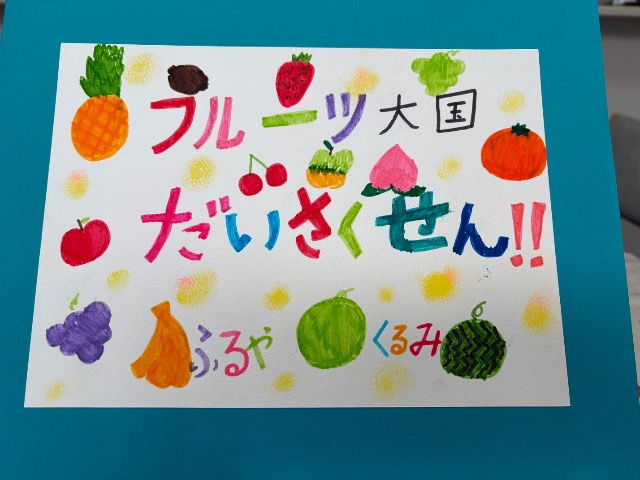 フルーツ大国
だいさくせん!!
ふるや くるみ